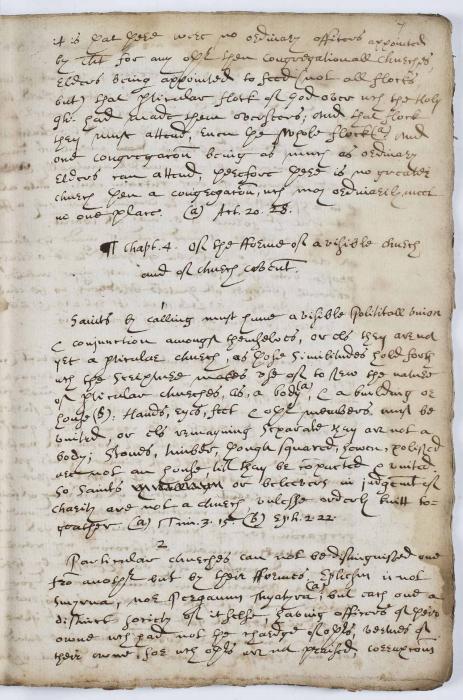 7
it is that there were no ordinary officers appointed
by Christ for any other then Congregationall Churches,
Elders being appointed to feed (not all flocks
but) that pticular flock of God over wch the Holy
gh. had made them overseers, And that flock
they must attend, Even the whole flock (a) And
one congregation being as much as ordinary
Elders can attend, therefore there is no greater
church then a congregation, wch may ordinarily meet
in one place. (a) Act. 20. 28.
¶ Chapt. 4. Of the fforme of a visible church
and of church covent.
1
Saints by calling must have a visible Politicall union
& conjunction amongst themselves, or els they are not
yet a pticular church, as those Similitudes hold forth
wch the Scripture makes use of to shew the nature
of pticular churches, as, a body (a) & a building or
house (b): Hands, eyes, feet & other members must be
united, or els remayning Separate they are not a
body; Stones, timber, though squared, hewen, & polished
are not an house, till they be compacted & united.
So, Saints or beleevers in judgment of
charity are not a church unlesse orderly knitt to-
geather. (a) 1 Tim. 3. 15. (b) Eph. 2. 22.
2
Particular churches can not be distinguished one
from another but by their fformes, Ephesus is not
Smyrna, nor Pergamus Thyatyra, (a) but each one a
distinct society of it selfe, having officers of their
owne wch had not the charge of others, vertues of
their owne, for wch others are not praised, corruptions